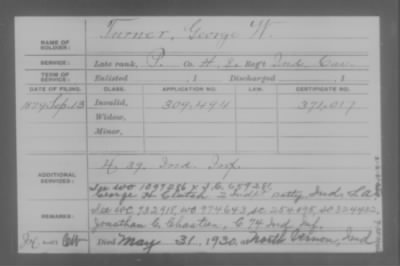 NAME OF SOLDIER: Turner, George W.
SERVICE: Late rank, P. Co. H, 8. Regt Ind. Cav.
TERM OF SERVICE: Enlisted , 1 Discharged , 1
DATE OF FILING. CLASS. APPLICATION NO. LAW. CERTIFICATE NO.
1879 Sep. 13 Invalid, 309,494 371,017
Widow,
Minor,
ADDITIONAL SERVICES: H, 39. Ind. Inf.
See WO 1097286
George H. Ind. Batty, Ind. L.A.
REMARKS: See WC 732918, WO 974643,
Jonathan C. Chasteen, C 74 Ind. Inf.
Died May 31, 1930, at North Vernon, Ind